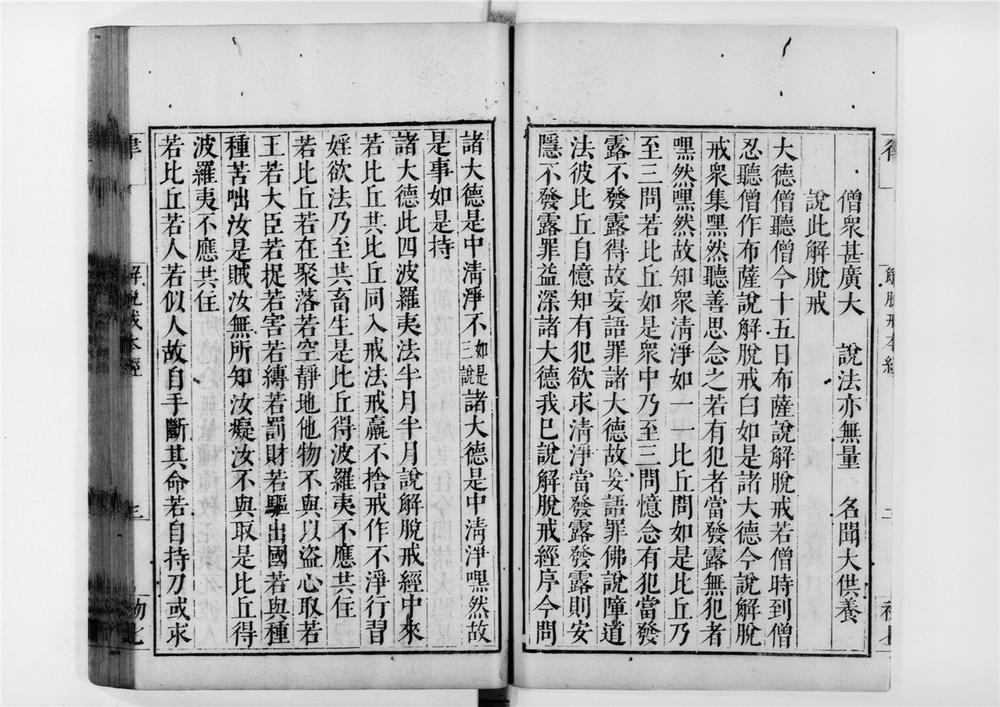 僧衆甚廣大　說法亦無量　名聞大供養
說此解脫戒
大德僧聽僧今十五日布薩說解脫戒若僧時到僧
忍聽僧作布薩說解脫戒白如是諸大德今說解脫
戒衆集嘿然聽善思念之若有犯者當發露無犯者
嘿然嘿然故知衆清淨如一一比丘問如是比丘乃
至三問若比丘如是衆中乃至三問憶念有犯當發
露不發露得故妄語罪諸大德故妄語罪佛說障道
法彼比丘自憶知有犯欲求清淨當發露發露則安
隱不發露罪益深諸大德我已說解脫戒經序今問
諸大德是中清淨不如是三說諸大德是中清淨嘿然故
是事如是持
諸大德此四波羅夷法半月半月說解脫戒經中來
若比丘共比丘同入戒法戒羸不捨戒作不淨行習
婬欲法乃至共畜生是比丘得波羅夷不應共住
若比丘若在聚落若空靜地他物不與以盜心取若
王若大臣若捉若害若縛若罰財若驅出國若與種
種苦咄汝是賊汝無所知汝癡汝不與取是比丘得
波羅夷不應共住
若比丘若人若似人故自手斷其命若自持刀或求
解脫戒本經
三